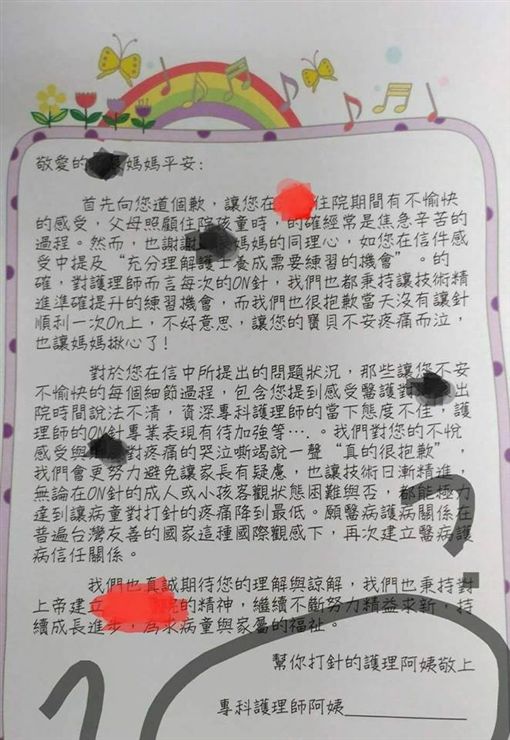 敬愛的 媽媽平安：
首先向您道個歉，讓您在 住院期間有不愉快
的感受，父母照顧住院孩童時，的確經常是焦急辛苦的
過程。然而，也謝謝 媽媽的同理心，如您在信件感
受中提及“充分理解護士養成需要練習的機會”。的
確，對護理師而言每次的ON針，我們也都秉持讓技術精
進準確提升的練習機會，而我們也很抱歉當天沒有讓針
順利一次On上，不好意思，讓您的寶貝不安疼痛而泣，
也讓媽媽揪心了!
對於您在信中所提出的問題狀況，那些讓您不安
不愉快的每個細節過程，包含您提到感受醫護對 出
院時間說法不清，資深專科護理師的當下態度不佳，護
理師的ON針專業表現有待加強等….。我們對您的不悅
感受與 對疼痛的哭泣嘶竭說一聲“真的很抱歉”，
我們會更努力避免讓家長有疑慮，也讓技術日漸精進，
無論在ON針的成人或小孩客觀狀態困難與否，都能極力
達到讓病童對打針的疼痛降到最低。願醫病護病關係在
普遍台灣友善的國家這種國際觀感下，再次建立醫病護
病信任關係。
我們也真誠期待您的理解與諒解，我們也秉持對
上帝建立 的精神，繼續不斷努力精益求新，持
續成長進步，為求病童與家屬的福祉。
幫你打針的護理阿姨敬上
專科護理師阿姨